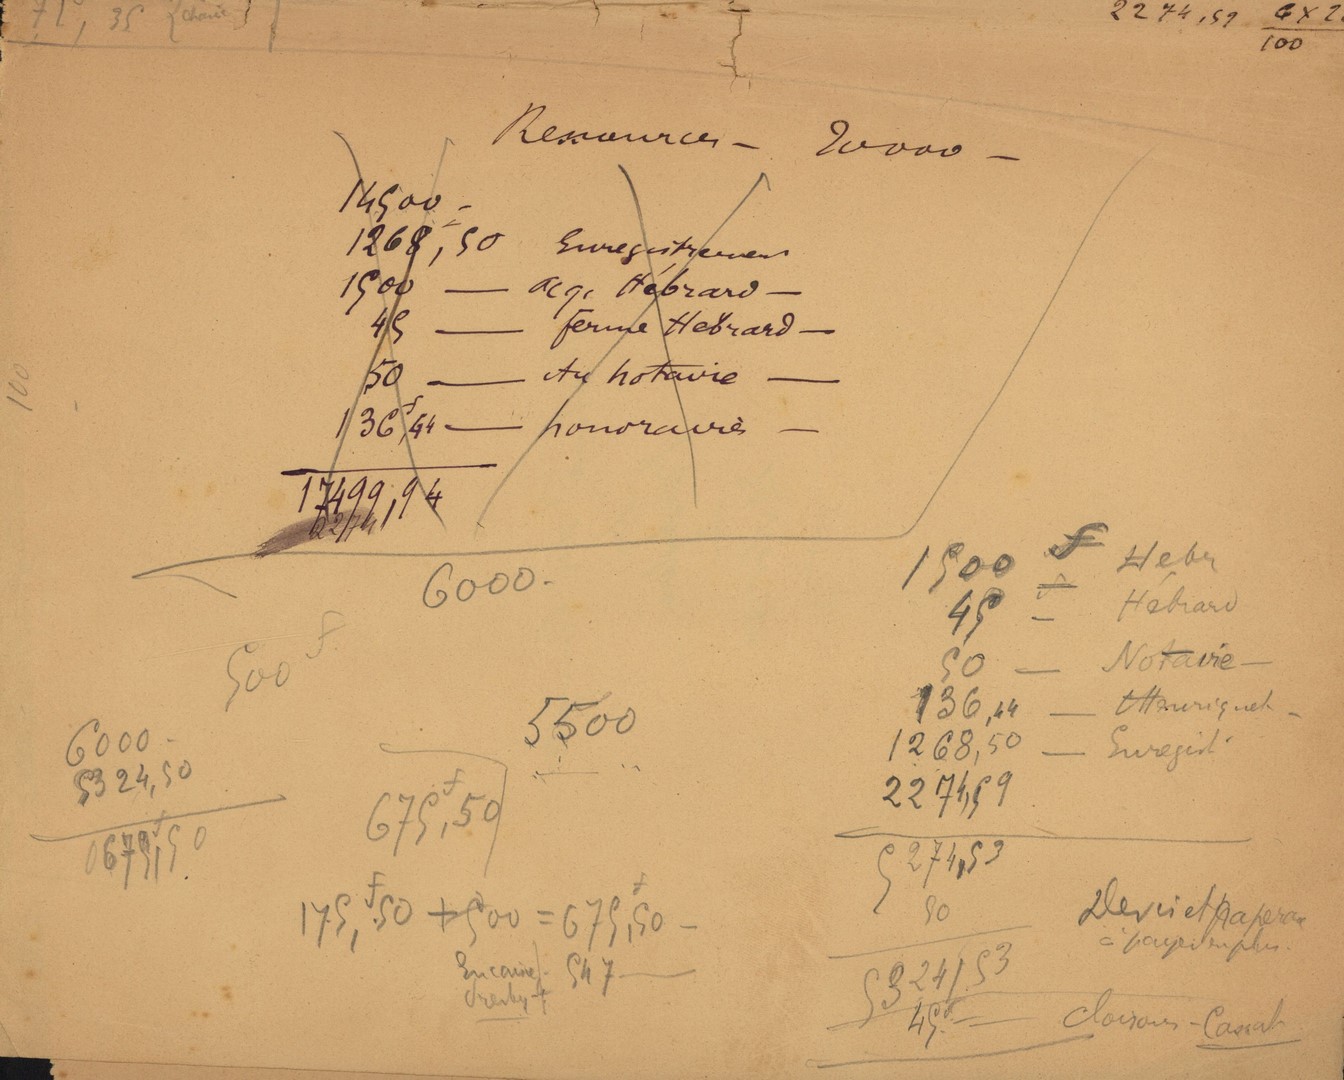 71, 35 (Chaise)
2274,59 6 X 2
100
Ressources - 20000 -
14500 -
1268f,50 Enregistrement
1500 — acq. Hébrard —
45 — ferme Hébrard —
50 — au notaire —
136f,44 — honoraires —
17499,94
2274
100
6000 -
500 f
6000 -
5324,50
0675f,50
5500
675f,50
175,f50 + 500 = 675,f50 -
547 —
1500 f Hebr
45 f - Hébrard
50 — Notaire —
136,44 —
1268,50 — Enregist
2274,59
5274,53
50 Devis et
à payer en plus.
5324,53
45f — Cloisons -